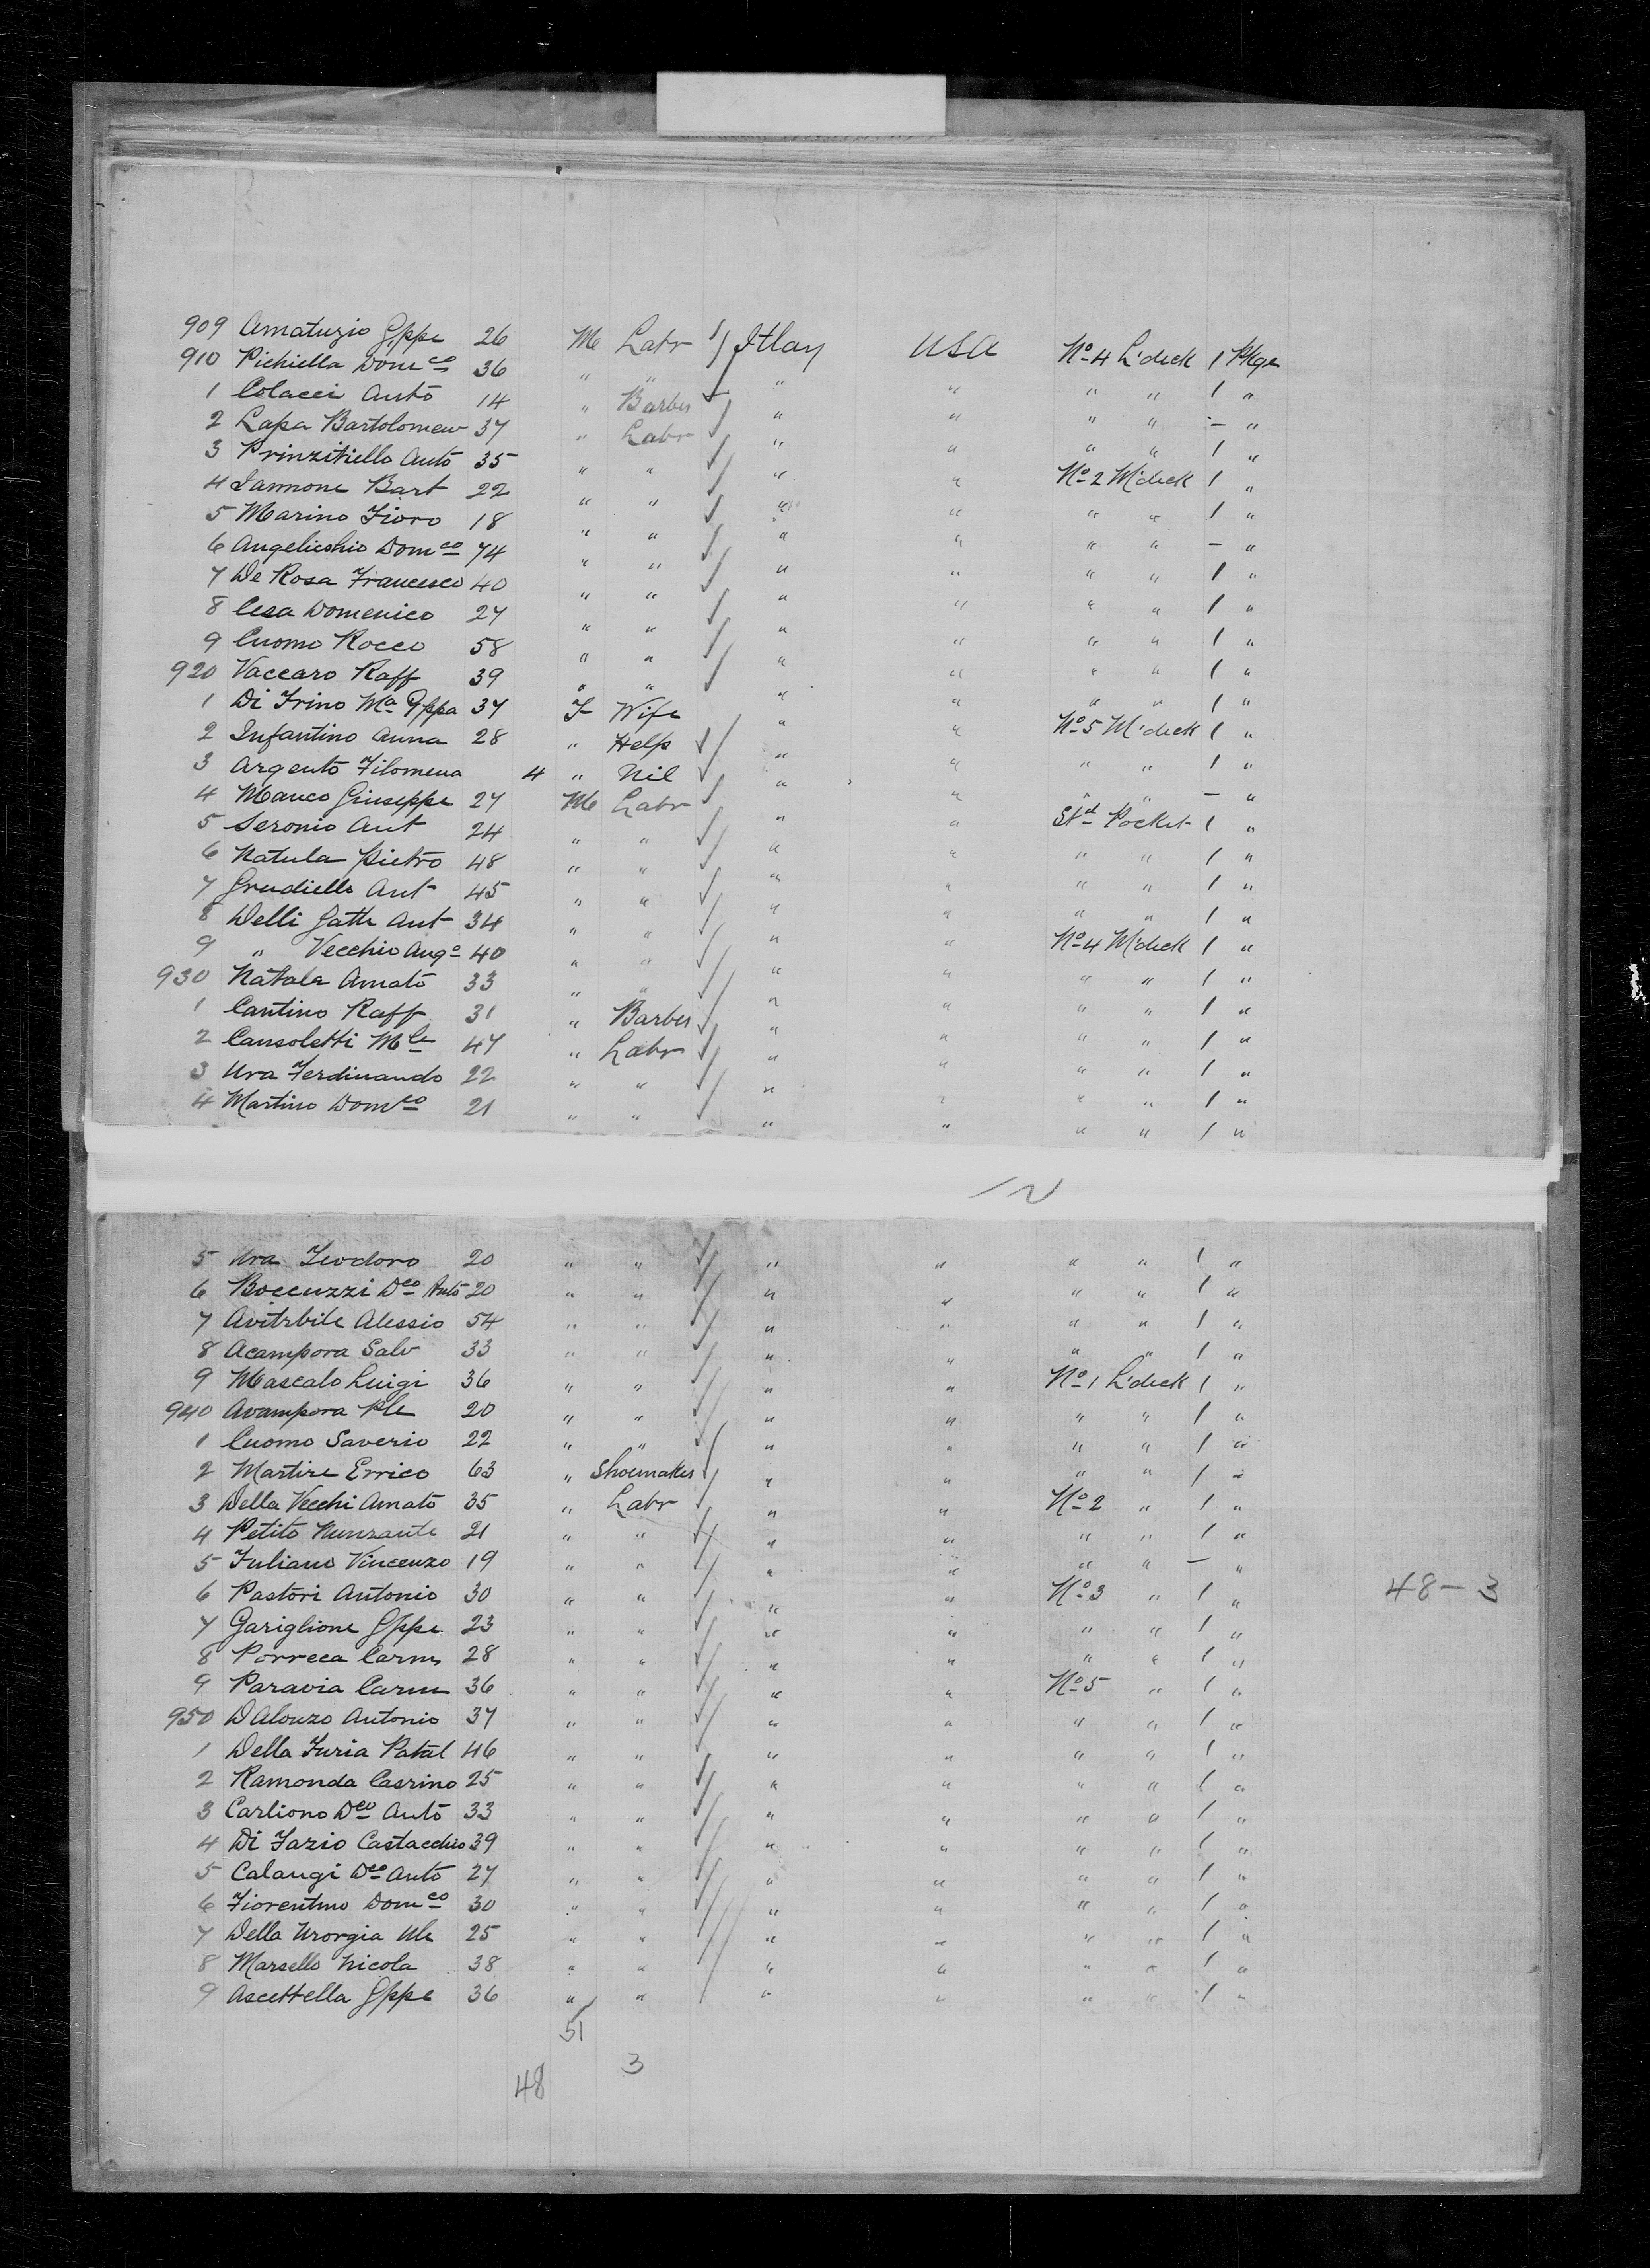 909 Amatuzio Gppe 26 M Labr Itlay USA No 4 L'deck 1 Pkge
910 Pichiella Domco 36 " " " " " " 1 "
1 Colacci Anto 14 " Barber " " " " - "
2 Lapa Bartolomew 37 " Labr " " " " 1 "
3 Prinzitiello Anto 35 " " " " No 2 M'deck 1 "
4 Iannone Bart 22 " " " " " " 1 "
5 Marino Fioro 18 " " " " " " - "
6 Angelicchio Domco 74 " " " " " " 1 "
7 De Rosa Francesco 40 " " " " " " 1 "
8 Cesa Domenico 27 " " " " " " 1 "
9 Cuomo Rocco 58 " " " " " " 1 "
920 Vaccaro Raff 39 " " " " " " 1 "
1 Di Trino Ma Gppa 37 F Wife " " No 5 M'deck 1 "
2 Infantino Anna 28 " Help " " " " 1 "
3 Argento Filomena 4 " Nil " " " " - "
4 Manco Giuseppe 27 M Labr " " Std Pocket 1 "
5 Seronio Ant 24 " " " " " " 1 "
6 Natula Pietro 48 " " " " " " 1 "
7 Grudiello Ant 45 " " " " " " 1 "
8 Delli Gatti Ant 34 " " " " No 4 M'deck 1 "
9 " Vecchio Ango 40 " " " " " " 1 "
930 Natale Amato 33 " " " " " " 1 "
1 Cantino Raff 31 " Barber " " " " 1 "
2 Cansoletti Mle 47 " Labr " " " " 1 "
3 Ura Ferdinando 22 " " " " " " 1 "
4 Martino Domco 21 " " " " " " 1 "
5 Ura Teodoro 20 " " " " " " 1 "
6 Boccuzzi Dco Anto 20 " " " " " " 1 "
7 Avitrbile Alessio 54 " " " " " " 1 "
8 Acampora Salv 33 " " " " " " 1 "
9 Mascalo Luigi 36 " " " " No 1 L'deck 1 "
940 Avampora Rle 20 " " " " " " 1 "
1 Cuomo Saverio 22 " " " " " " 1 "
2 Martire Errico 63 " Shoemaker " " " " 1 "
3 Della Vecchi Amato 35 " Labr " " No 2 " 1 "
4 Petito Nunzante 21 " " " " " " 1 "
5 Iuliano Vincenzo 19 " " " " " " - "
6 Pastori Antonio 30 " " " " No 3 " 1 " 48-3
7 Gariglione Gppe 23 " " " " " " 1 "
8 Porreca Carm 28 " " " " " " 1 "
9 Paravia Carm 36 " " " " No 5 " 1 "
950 D Alonzo Antonio 37 " " " " " " 1 "
1 Della Furia Patal 46 " " " " " " 1 "
2 Ramonda Casrino 25 " " " " " " 1 "
3 Carliono Dco Anto 33 " " " " " " 1 "
4 Di Fazio Castacchio 39 " " " " " " 1 "
5 Calangi Dco Anto 27 " " " " " " 1 "
6 Fiorentino Domco 30 " " " " " " 1 "
7 Della Urorgia Mle 25 " " " " " " 1 "
8 Marsello Nicola 38 " " " " " " 1 "
9 Ascettella Gppe 36 " " " " " " 1 "
51
3
48